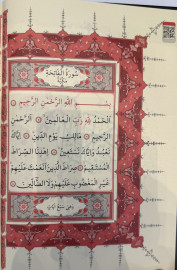 سُورَةُ الْفَاتِحَةِ
بِسْمِ اللَّهِ الرَّحْمَٰنِ الرَّحِيمِ
الْحَمْدُ لِلَّهِ رَبِّ الْعَالَمِينَ الرَّحْمَٰنِ
الرَّحِيمِ مَالِكِ يَوْمِ الدِّينِ إِيَّاكَ
نَعْبُدُ وَإِيَّاكَ نَسْتَعِينُ اهْدِنَا الصِّرَاطَ
الْمُسْتَقِيمَ صِرَاطَ الَّذِينَ أَنْعَمْتَ عَلَيْهِمْ
غَيْرِ الْمَغْضُوبِ عَلَيْهِمْ وَلَا الضَّالِّينَ